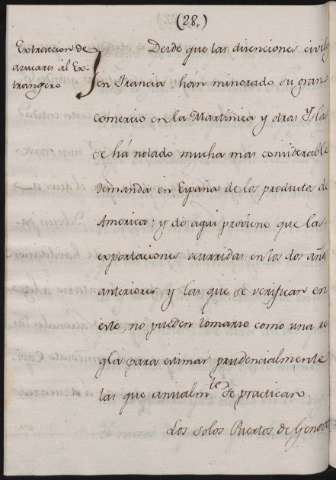 (28.)
Extraccion de
azucares al Ex-
trangero
Desde que las disenciones civil
en Francia han minorado su gran
comercio en la Martinica y otras Isla
se há notado mucha mas considerable
demanda en España de los productos de
America; y de aqui proviene que las
exportaciones ocurridas en los dos años
anteriores, y las que se verifican en
este, no pueden tomarse como una re
gla para estimar prudencialmente
las que anualm.te se practican.
Los solos Puertos de Genov